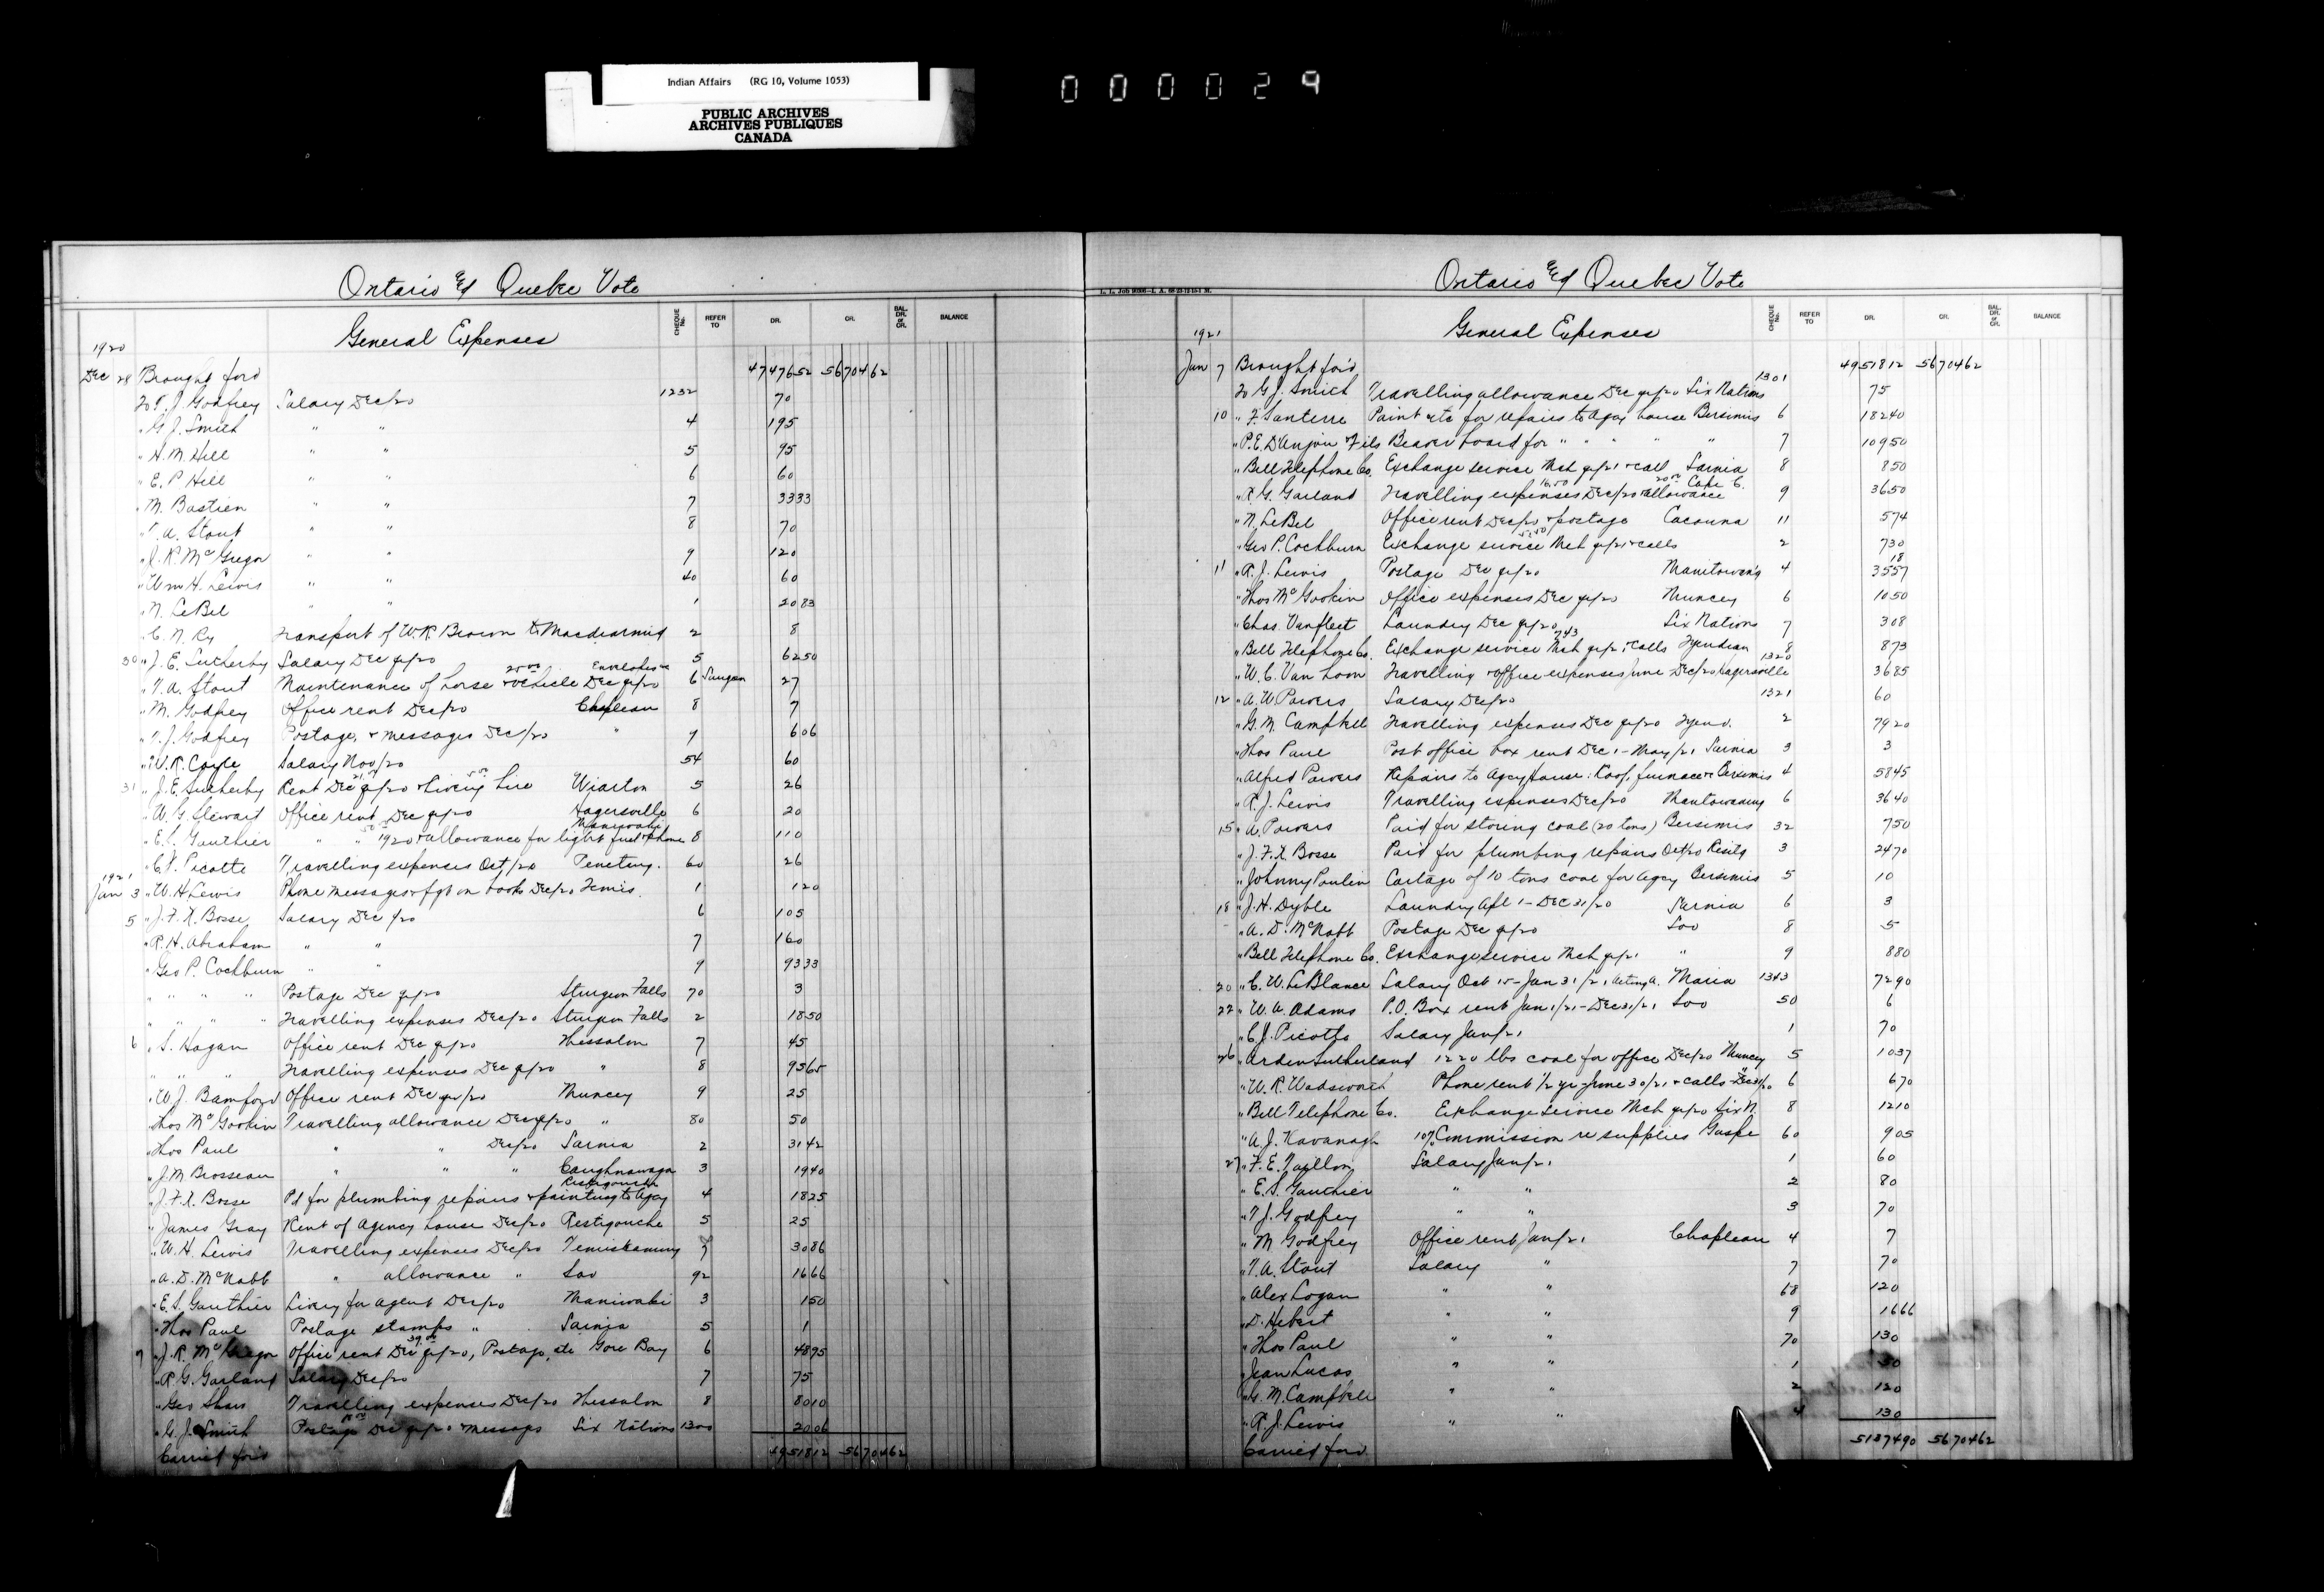 Indian Affairs (RG 10, Volume 1053)
PUBLIC ARCHIVES
ARCHIVES PUBLIQUES
CANADA
000029
Ontario & Quebec Vote
General Expenses
CHEQUE No. REFER TO DR. CR. BAL. DR. or CR. BALANCE
1920
Dec 28 Brought ford 4747652 5670462
To T. J. Godfrey Salary Dec/20 1232 70
" G. J. Smith " " 4 195
" H. M. Hill " " 5 95
" E. P. Hill " " 6 60
" M. Bastien " " 7 3333
" T. A. Stout " " 8 70
" J. R. McGregor " " 9 120
" Wm H. Lewis " " 40 60
" N. LeBel " " 1 2083
" C. N. Ry Transport of W. R. Brown to Macdiarmid 2 8
30 " J. E. Sutherby Salary Dec qr/20 5 6250
" T. A. Stout Maintenance of horse & vehicle Dec qr/20 6 Saugeen 27
" M. Godfrey Office rent Dec/20 Chapleau 8 7
" T. J. Godfrey Postage & messages Dec/20 " 9 606
" W. R. Coyle Salary Nov/20 54 60
31 " J. E. Sutherby Rent Dec qr/20 & livery hire Wiarton 5 26
" W. G. Stewart Office rent Dec qr/20 Hagersville 6 20
" E. S. Gauthier " " 1920 & allowance for light fuel & phone Maniwaki 8 110
" C. J. Picotte Travelling expenses Oct/20 Penetang. 60 26
1921
Jan 3 " W. H. Lewis Phone messages & fgt on books Dec/20 Temis. 1 120
5 " J. F. X. Bosse Salary Dec/20 6 105
" R. H. Abraham " " 7 160
" Geo P. Cockburn " " 9 9333
" " " " Postage Dec qr/20 Sturgeon Falls 70 3
" " " " Travelling expenses Dec/20 Sturgeon Falls 2 1850
6 " S. Hagan Office rent Dec qr/20 Thessalon 7 45
" " " Travelling expenses Dec qr/20 " 8 9565
" W. J. Bamford Office rent Dec qr/20 Muncey 9 25
" Thos McGookin Travelling allowance Dec qr/20 " 80 50
" Thos Paul " " Dec/20 Sarnia 2 3142
" J. M. Brosseau " " " Caughnawaga 3 1940
" J. F. X. Bosse Pd for plumbing repairs & painting to Agcy Restigouche 4 1825
" James Gray Rent of Agency house Dec/20 Restigouche 5 25
" W. H. Lewis Travelling expenses Dec/20 Temiskaming 7 3086
" A. D. McNabb " allowance " Soo 92 1666
" E. S. Gauthier Livery for agent Dec/20 Maniwaki 3 150
" Thos Paul Postage stamps " Sarnia 5 1
7 " J. R. McGregor Office rent Dec qr/20, Postage, etc Gore Bay 6 4875
" R. G. Garland Salary Dec/20 7 75
" Geo Shaw Travelling expenses Dec/20 Thessalon 8 8010
" G. J. Smith Postage Dec qr/20 & messages Six Nations 1300 2006
Carried ford 4951812 5670462
Ontario & Quebec Vote
General Expenses
CHEQUE No. REFER TO DR. CR. BAL. DR. or CR. BALANCE
1921
Jan 7 Brought for'd 4951812 5670462
To G. J. Smith Travelling allowance Dec qr/20 Six Nations 1301 75
10 " F. Santerre Paint etc for repairs to Agcy house Bersimis 6 18240
" P. E. D'Anjou & Fils Beaver board for " " " " 7 10950
" Bell Telephone Co. Exchange service Mch qr/21 & call Sarnia 8 850
" R. G. Garland Travelling expenses Dec/20 & allowance Cape C. 9 3650
" N. LeBel Office rent Dec/20 & postage Cacouna 11 574
" Geo P. Cockburn Exchange service Mch qr/21 & calls 2 730
11 " R. J. Lewis Postage Dec qr/20 Manitow'ng 4 3557
" Thos McGookin Office expenses Dec qr/20 Muncey 6 1050
" Chas. Vanfleet Laundry Dec qr/20 Six Nations 7 308
" Bell Telephone Co. Exchange service Mch qr/21 & calls Tyendinaga 8 873
" W. C. Van Loon Travelling & office expenses June - Dec/20 Hagersville 1320 3685
12 " A. W. Powers Salary Dec/20 1321 60
" G. M. Campbell Travelling expenses Dec qr/20 Tyend. 2 7920
" Thos Paul Post office box rent Dec 1 - May/21 Sarnia 3 3
" Alfred Powers Repairs to Agcy house: Roof, furnace & Bersimis 4 5845
" R. J. Lewis Travelling expenses Dec/20 Manitowaning 6 3640
15 " A. Powers Paid for storing coal (20 tons) Bersimis 32 750
" J. F. X. Bosse Paid for plumbing repairs Oct/20 Restig 3 2470
" Johnny Poulin Cartage of 10 tons coal for Agcy Bersimis 5 10
18 " J. H. Dyble Laundry Apl 1 - Dec 31/20 Sarnia 6 3
" A. D. McNabb Postage Dec qr/20 Soo 8 5
" Bell Telephone Co. Exchange service Mch qr/21 " 9 880
20 " C. W. LeBlance Salary Oct 15 - Jan 31/21, Acting A. Maria 1343 7290
22 " W. A. Adams P.O. Box rent Jan 1/21 - Dec 31/21 Soo 50 6
" C. J. Picotte Salary Jan/21 1 70
26 " Arden Sutherland 1220 lbs coal for office Dec/20 Muncey 5 1037
" W. R. Wadsworth Phone rent 1/2 yr - June 30/21 & calls - Dec 31/20 " 6 670
" Bell Telephone Co. Exchange service Mch qr/20 Six N. 8 1210
" A. J. Kavanagh 10% Commission re supplies Gaspe 60 905
27 " F. E. Taillon Salary Jan/21 1 60
" E. S. Gauthier " " 2 80
" T. J. Godfrey " " 3 70
" M Godfrey Office rent Jan/21 Chapleau 4 7
" T. A. Stout Salary " 7 70
" Alex Logan " " 68 120
" D. Hebert " " 9 1666
" Thos Paul " " 70 130
" Jean Lucas " " 1
" G. M. Campbell " " 2 120
" R. J. Lewis " " 4 130
Carried ford 5137490 5670462